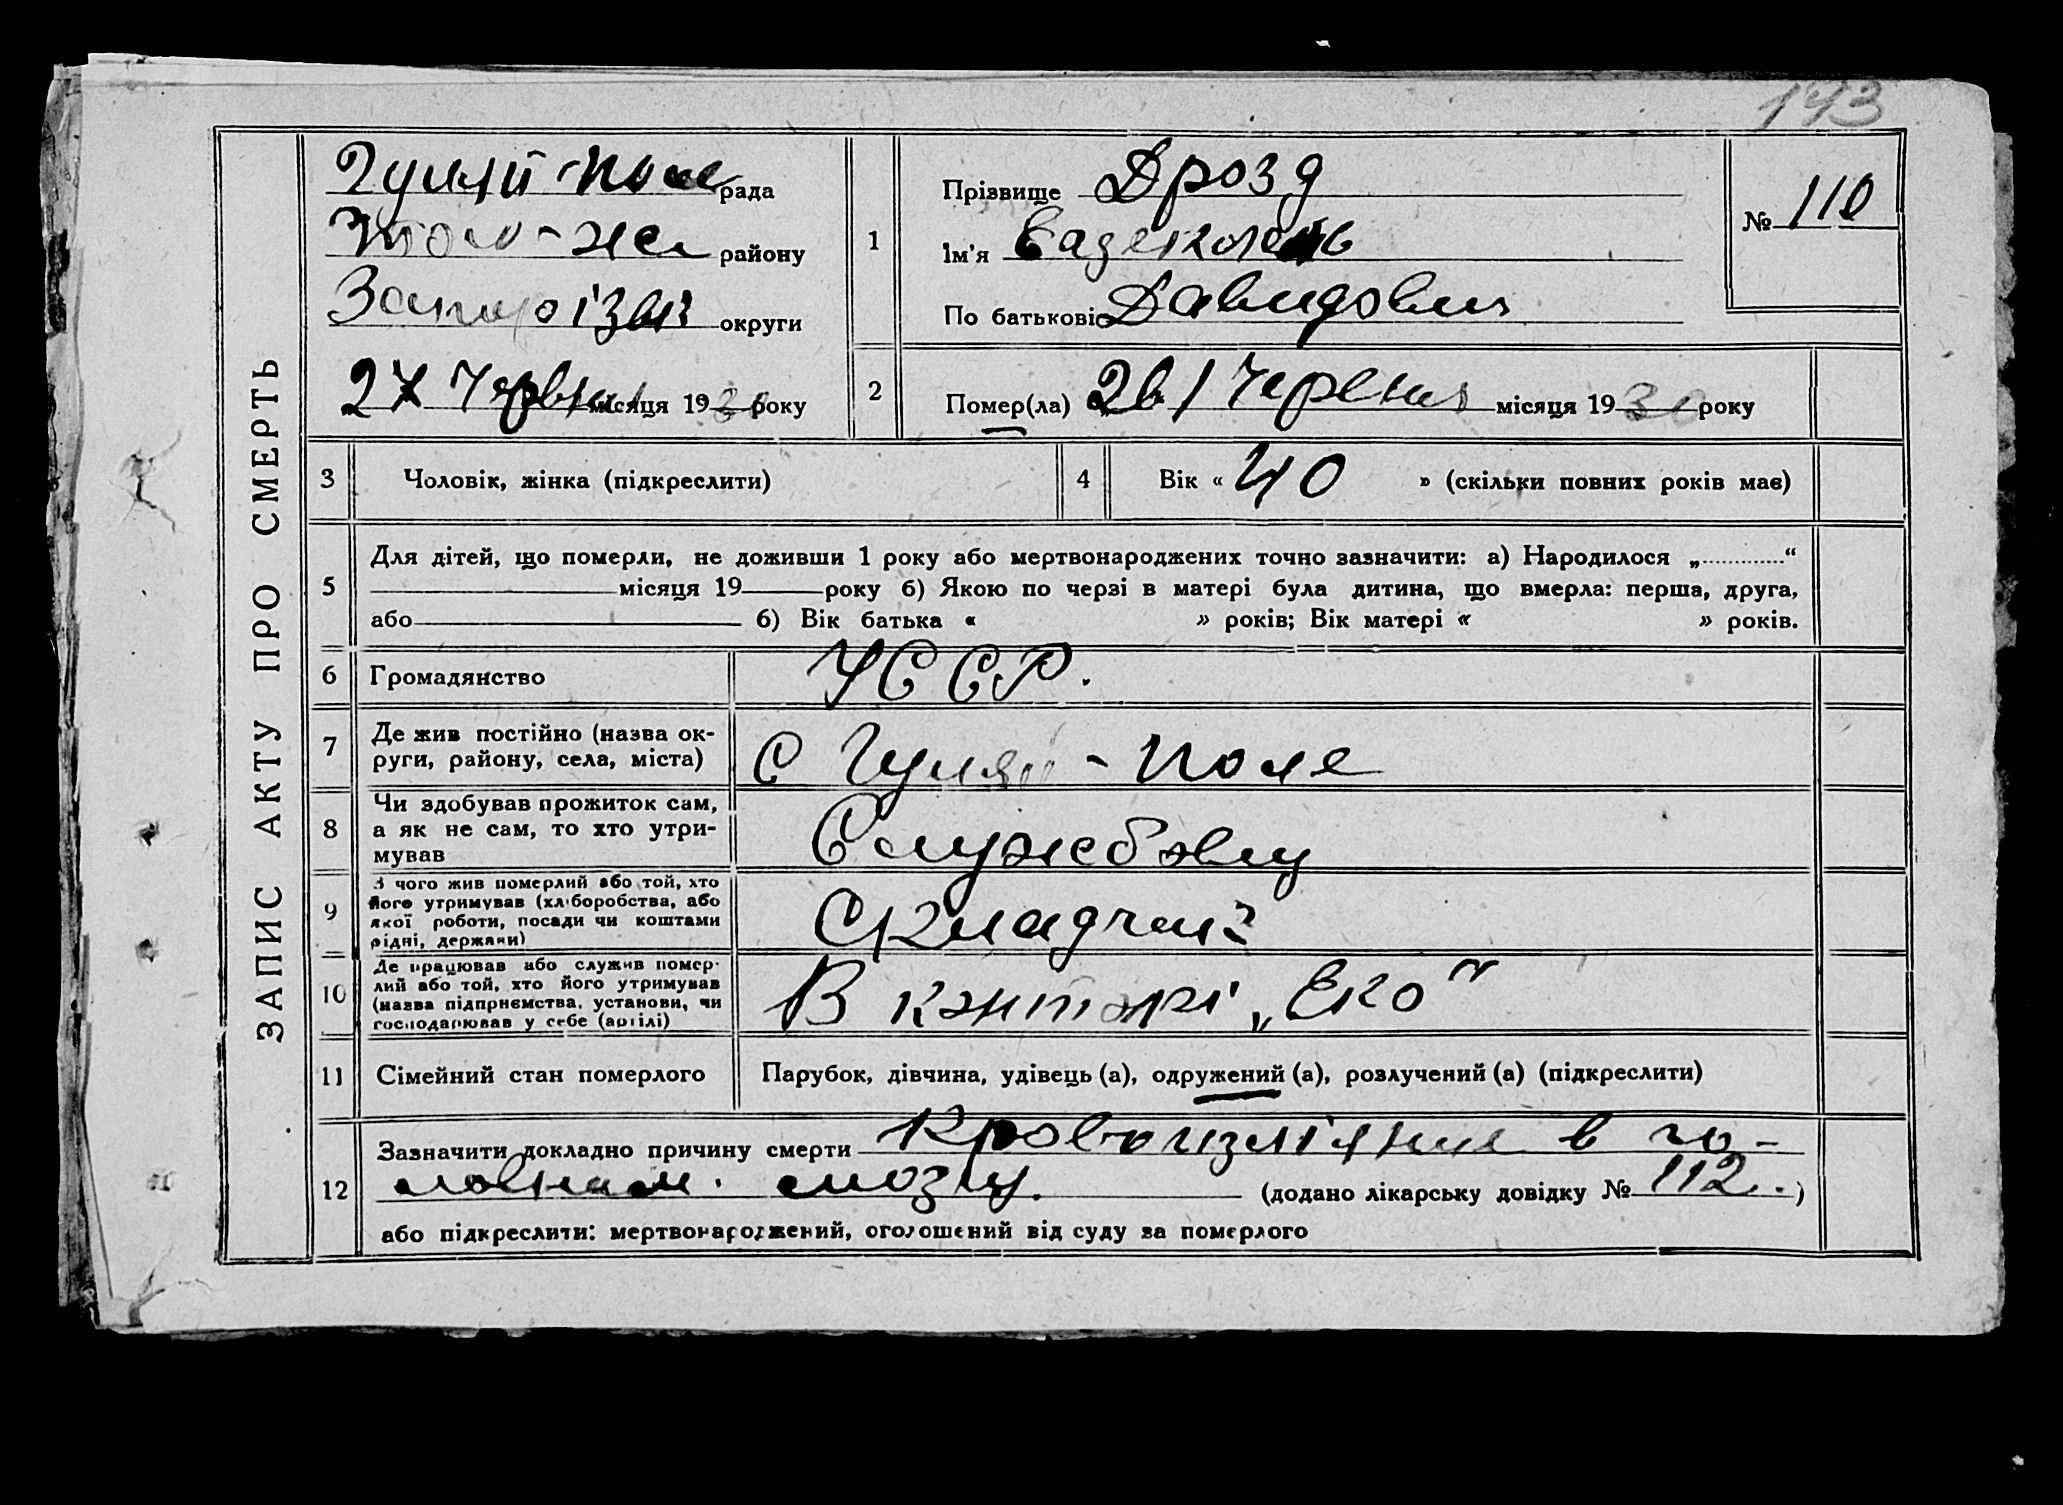 143
ЗАПИС АКТУ ПРО СМЕРТЬ
Гуляй-Поле рада
району
округи
27 Червня місяця 1930 року
1
Прізвище Дрозд
Ім'я
По батькові Давидович
№ 110
2
Помер(ла) 26/ Червня місяця 1930 року
3 Чоловік, жінка (підкреслити)
4 Вік « 40 » (скільки повних років має)
5
Для дітей, що померли, не доживши 1 року або мертвонароджених точно зазначити: а) Народилося „..............“
місяця 19 року б) Якою по черзі в матері була дитина, що вмерла: перша, друга,
або б) Вік батька « » років; Вік матері « » років.
6 Громадянство УССР.
7
Де жив постійно (назва ок-
руги, району, села, міста)
С Гуляй-Поле
8
Чи здобував прожиток сам,
а як не сам, то хто утри-
мував
Службовец
9
З чого жив померлий або той, хто
його утримував (хліборобства, або
якої роботи, посади чи коштами
рідні, держави)
10
Де працював або служив помер-
лий або той, хто його утримував
(назва підприємства, установи, чи
господарював у себе (артілі)
В конторі „Еко"
11 Сімейний стан померлого
Парубок, дівчина, удівець (а), одружений (а), розлучений (а) (підкреслити)
12
Зазначити докладно причину смерти Кровоизліяние в го-
ловном. мозгу. (додано лікарську довідку № 112.)
або підкреслити: мертвонароджений, оголошений від суду за померлого